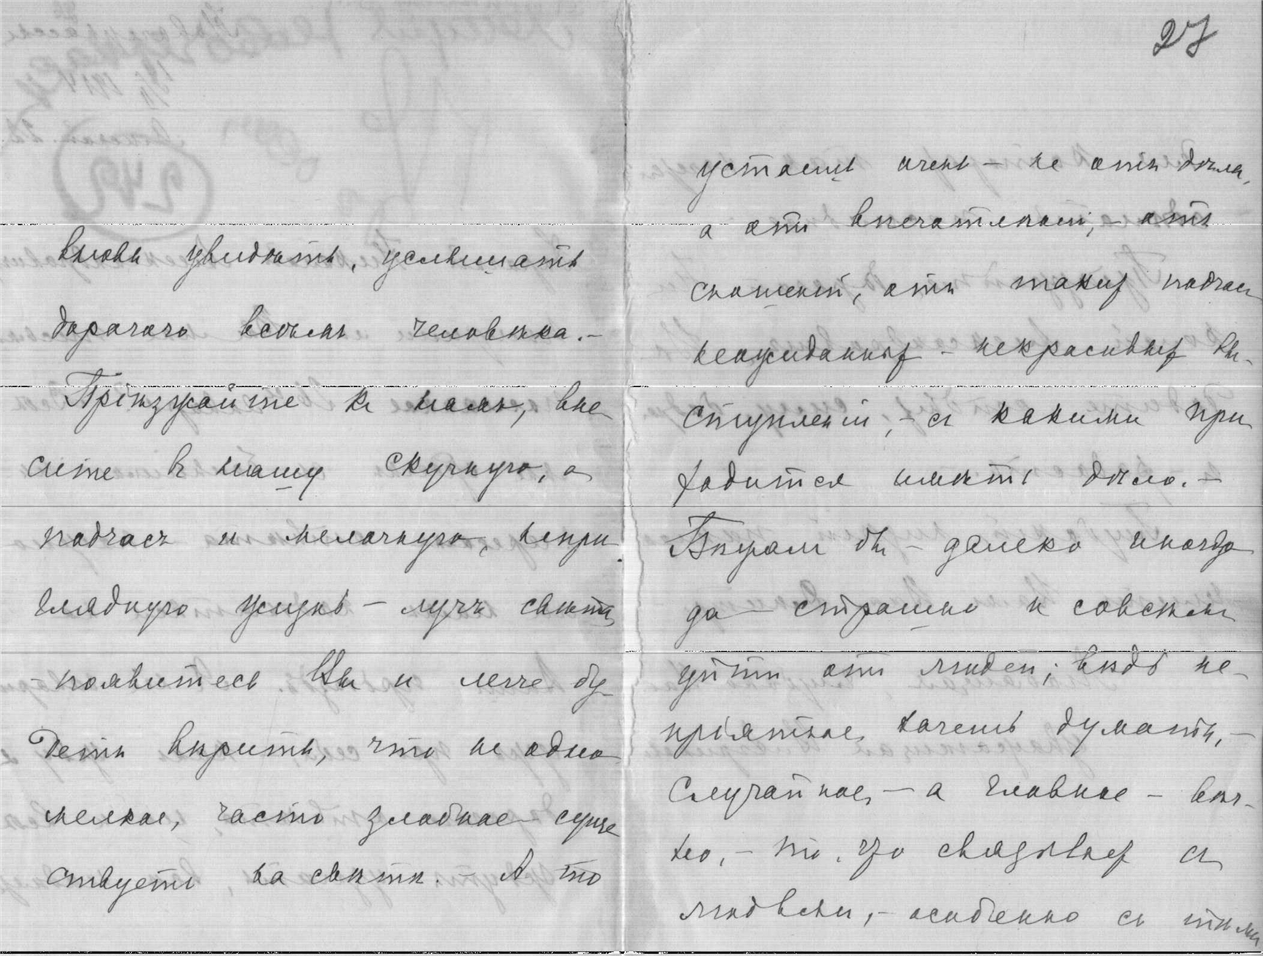 вновь увидѣть, услышать
дорогого всѣмъ человѣка.–
Пріѣзжайте къ намъ, вне-
сите въ нашу скучную, а
подчасъ и мелочную, непри
глядную жизнь – лучъ свѣта,
появитесь Вы и легче бу-
детъ вѣрить, что не одно
мелкое, часто злобное суще
ствуетъ на свѣтѣ. – А то
27
устаешь очень – не отъ дѣла,
а отъ впечатлѣній, – отъ
сношеній, отъ такихъ подчас
неожиданных – некрасивых вы-
ступленій, – съ какими при
ходится имѣть дѣло. –
Вѣрил бы – далеко иногда
да – страшно и совсѣмъ
уйти отъ людей; вѣдь не-
пріятное, хочешь думать, –
случайное, – а главное – вѣч-
но, – то, что связывает съ
людьми, – особенно съ тѣми